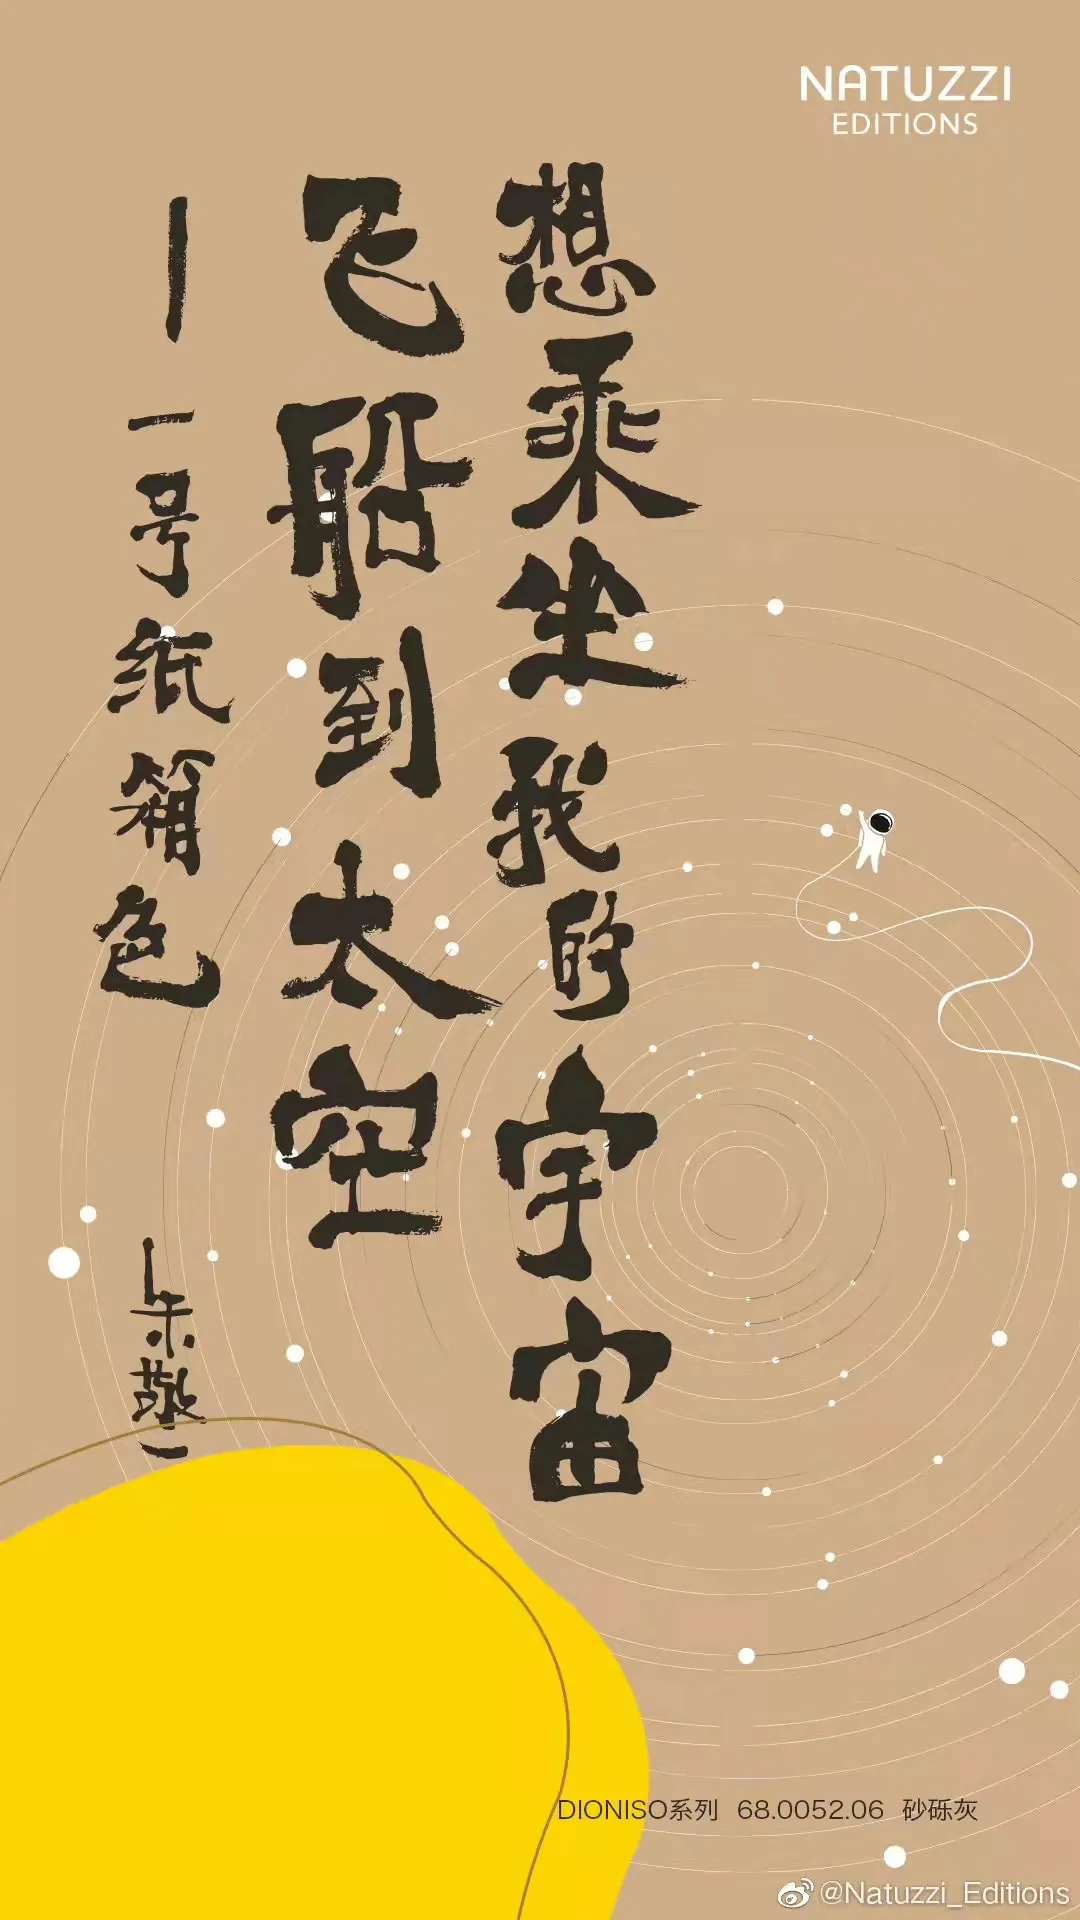 NATUZZI
EDITIONS
想乘坐我的宇宙
飞船到太空
—一号纸箱色
—朱敬一
DIONISO系列 68.0052.06 砂砾灰
@Natuzzi_Editions